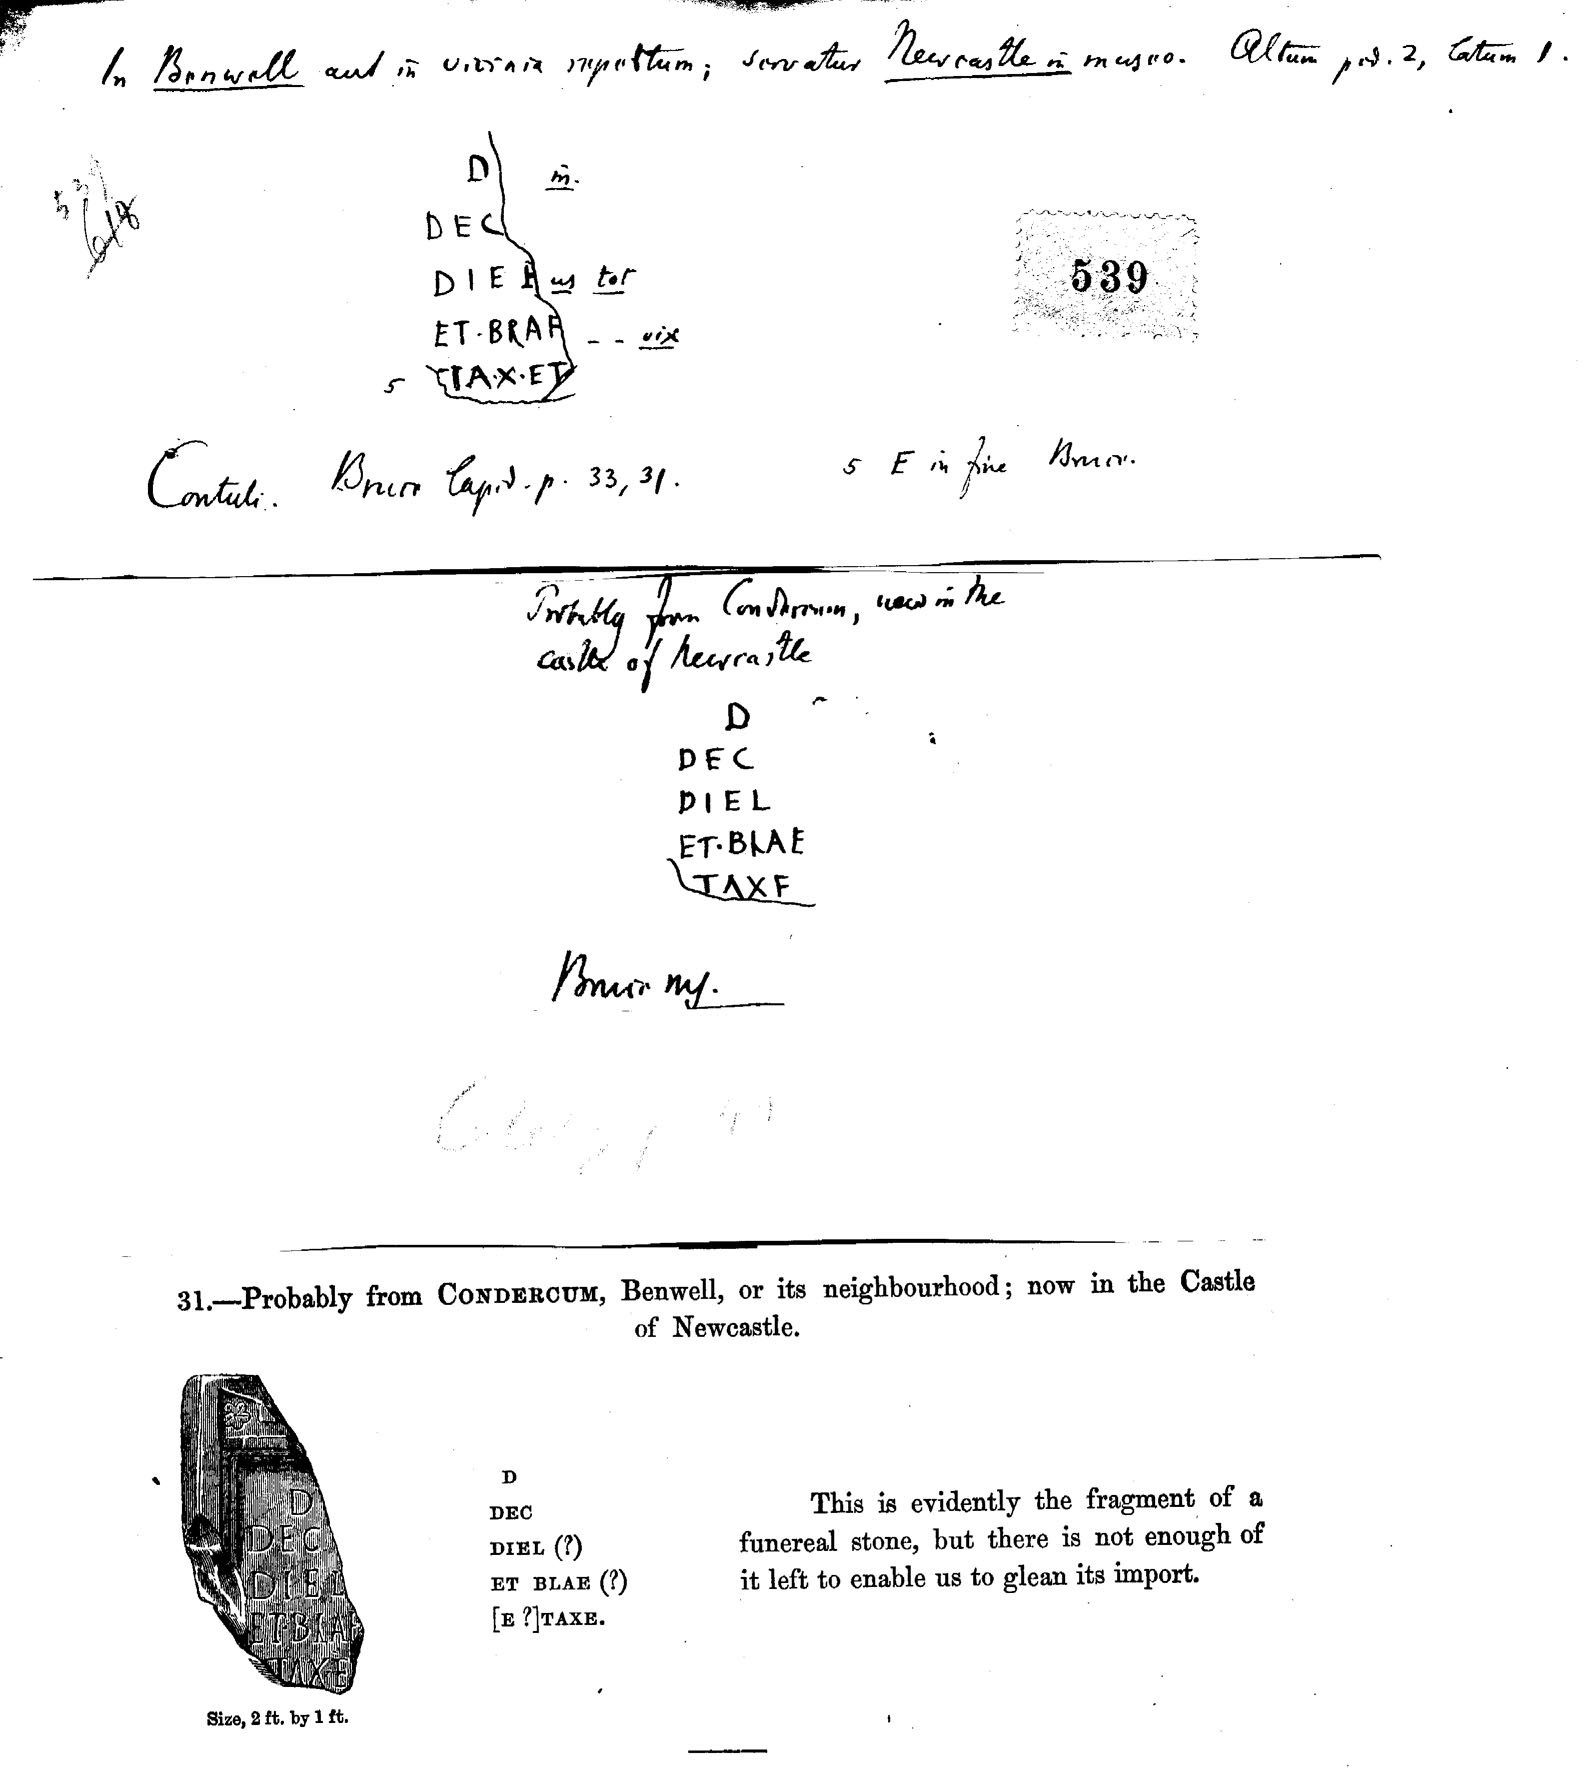 In Benwell aut in vicinia repertum; servatur Newcastle in museo. Altum ped. 2, latum 1.
D m.
DEC
539
DIE us tot
ET·BRAE - - vix
5 TA·X·ET
Contuli. Bruce lapid. p. 33, 31.
5 E in fine Bruce.
Probably from Condercum, now in the
castle of Newcastle
D
DEC
DIEL
ET·BLAE
TAXE
Bruce ms.
31.—Probably from CONDERCUM, Benwell, or its neighbourhood; now in the Castle
of Newcastle.
D
DEC
DIEL
ET·BLAE
TAXE
Size, 2 ft. by 1 ft.
D
DEC
DIEL (?)
ET BLAE (?)
[E ?]TAXE.
This is evidently the fragment of a
funereal stone, but there is not enough of
it left to enable us to glean its import.